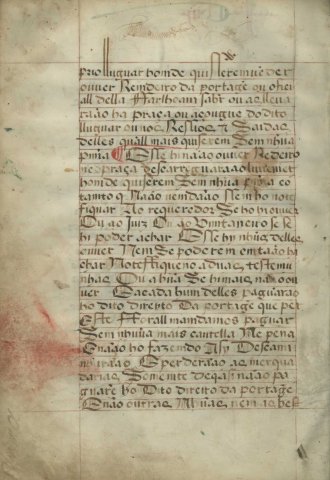 prio lluguar homde quiserem vemder
ouver Remdeiro da portage ou ofici
all della
ouao a praça ou açougue do dito
lluguar ou nos Resios & saidas
delles quall mais quiserem sem nhũa
pena E sse hi nã ouver Remdeiro
nẽ praça descarreguarã livremẽt
homde quiserem sem nhũa pena co
tamto que nã vemdam ssem ho note
fiquar Ao requeredor se ho hi ouver
Ou ao juiz Ou ao Vimtaneiro se se
hi poder achar E sse hi nhũu delles
ouver Nem se poderem emtam
achar Notefiqueno a duas testemu
nhas Ou a hũa se hi mais nã ou
ver E a cada hum delles paguarã
ho dito direito da portage que per
Este fforall mandamos paguar
Sem nhũa mais cautella Ne pena
E nã ho fazendo assy Descami
nharã E perderã as merqua
darias Somente de que assi nã pa
guarẽ ho Dito direito da portage
E nã outras Alguũas nem as bes